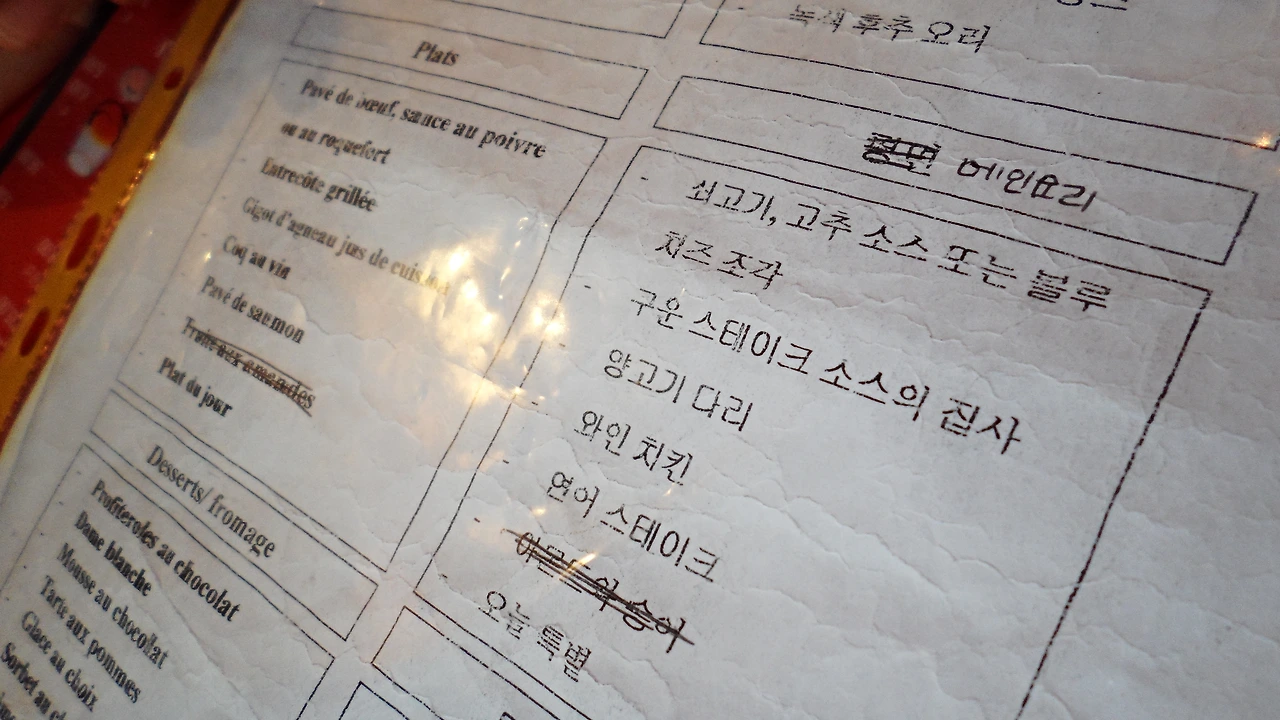 Plats
Pavé de bœuf, sauce au poivre
ou au roquefort
Entrecôte grillée
Gigot d'agneau jus de cuisson
Coq au vin
Pavé de saumon
Truite aux amandes
Plat du jour
Desserts/ fromage
Profiteroles au chocolat
Dame blanche
Mousse au chocolat
Tarte aux pommes
Glace au choix
Sorbet au
녹색 후추 오리
평면 메인요리
- 쇠고기, 고추 소스 또는 블루
치즈 조각
- 구운 스테이크 소스의 집사
- 양고기 다리
- 와인 치킨
- 연어 스테이크
- 아몬드와 숭어
오늘 특별